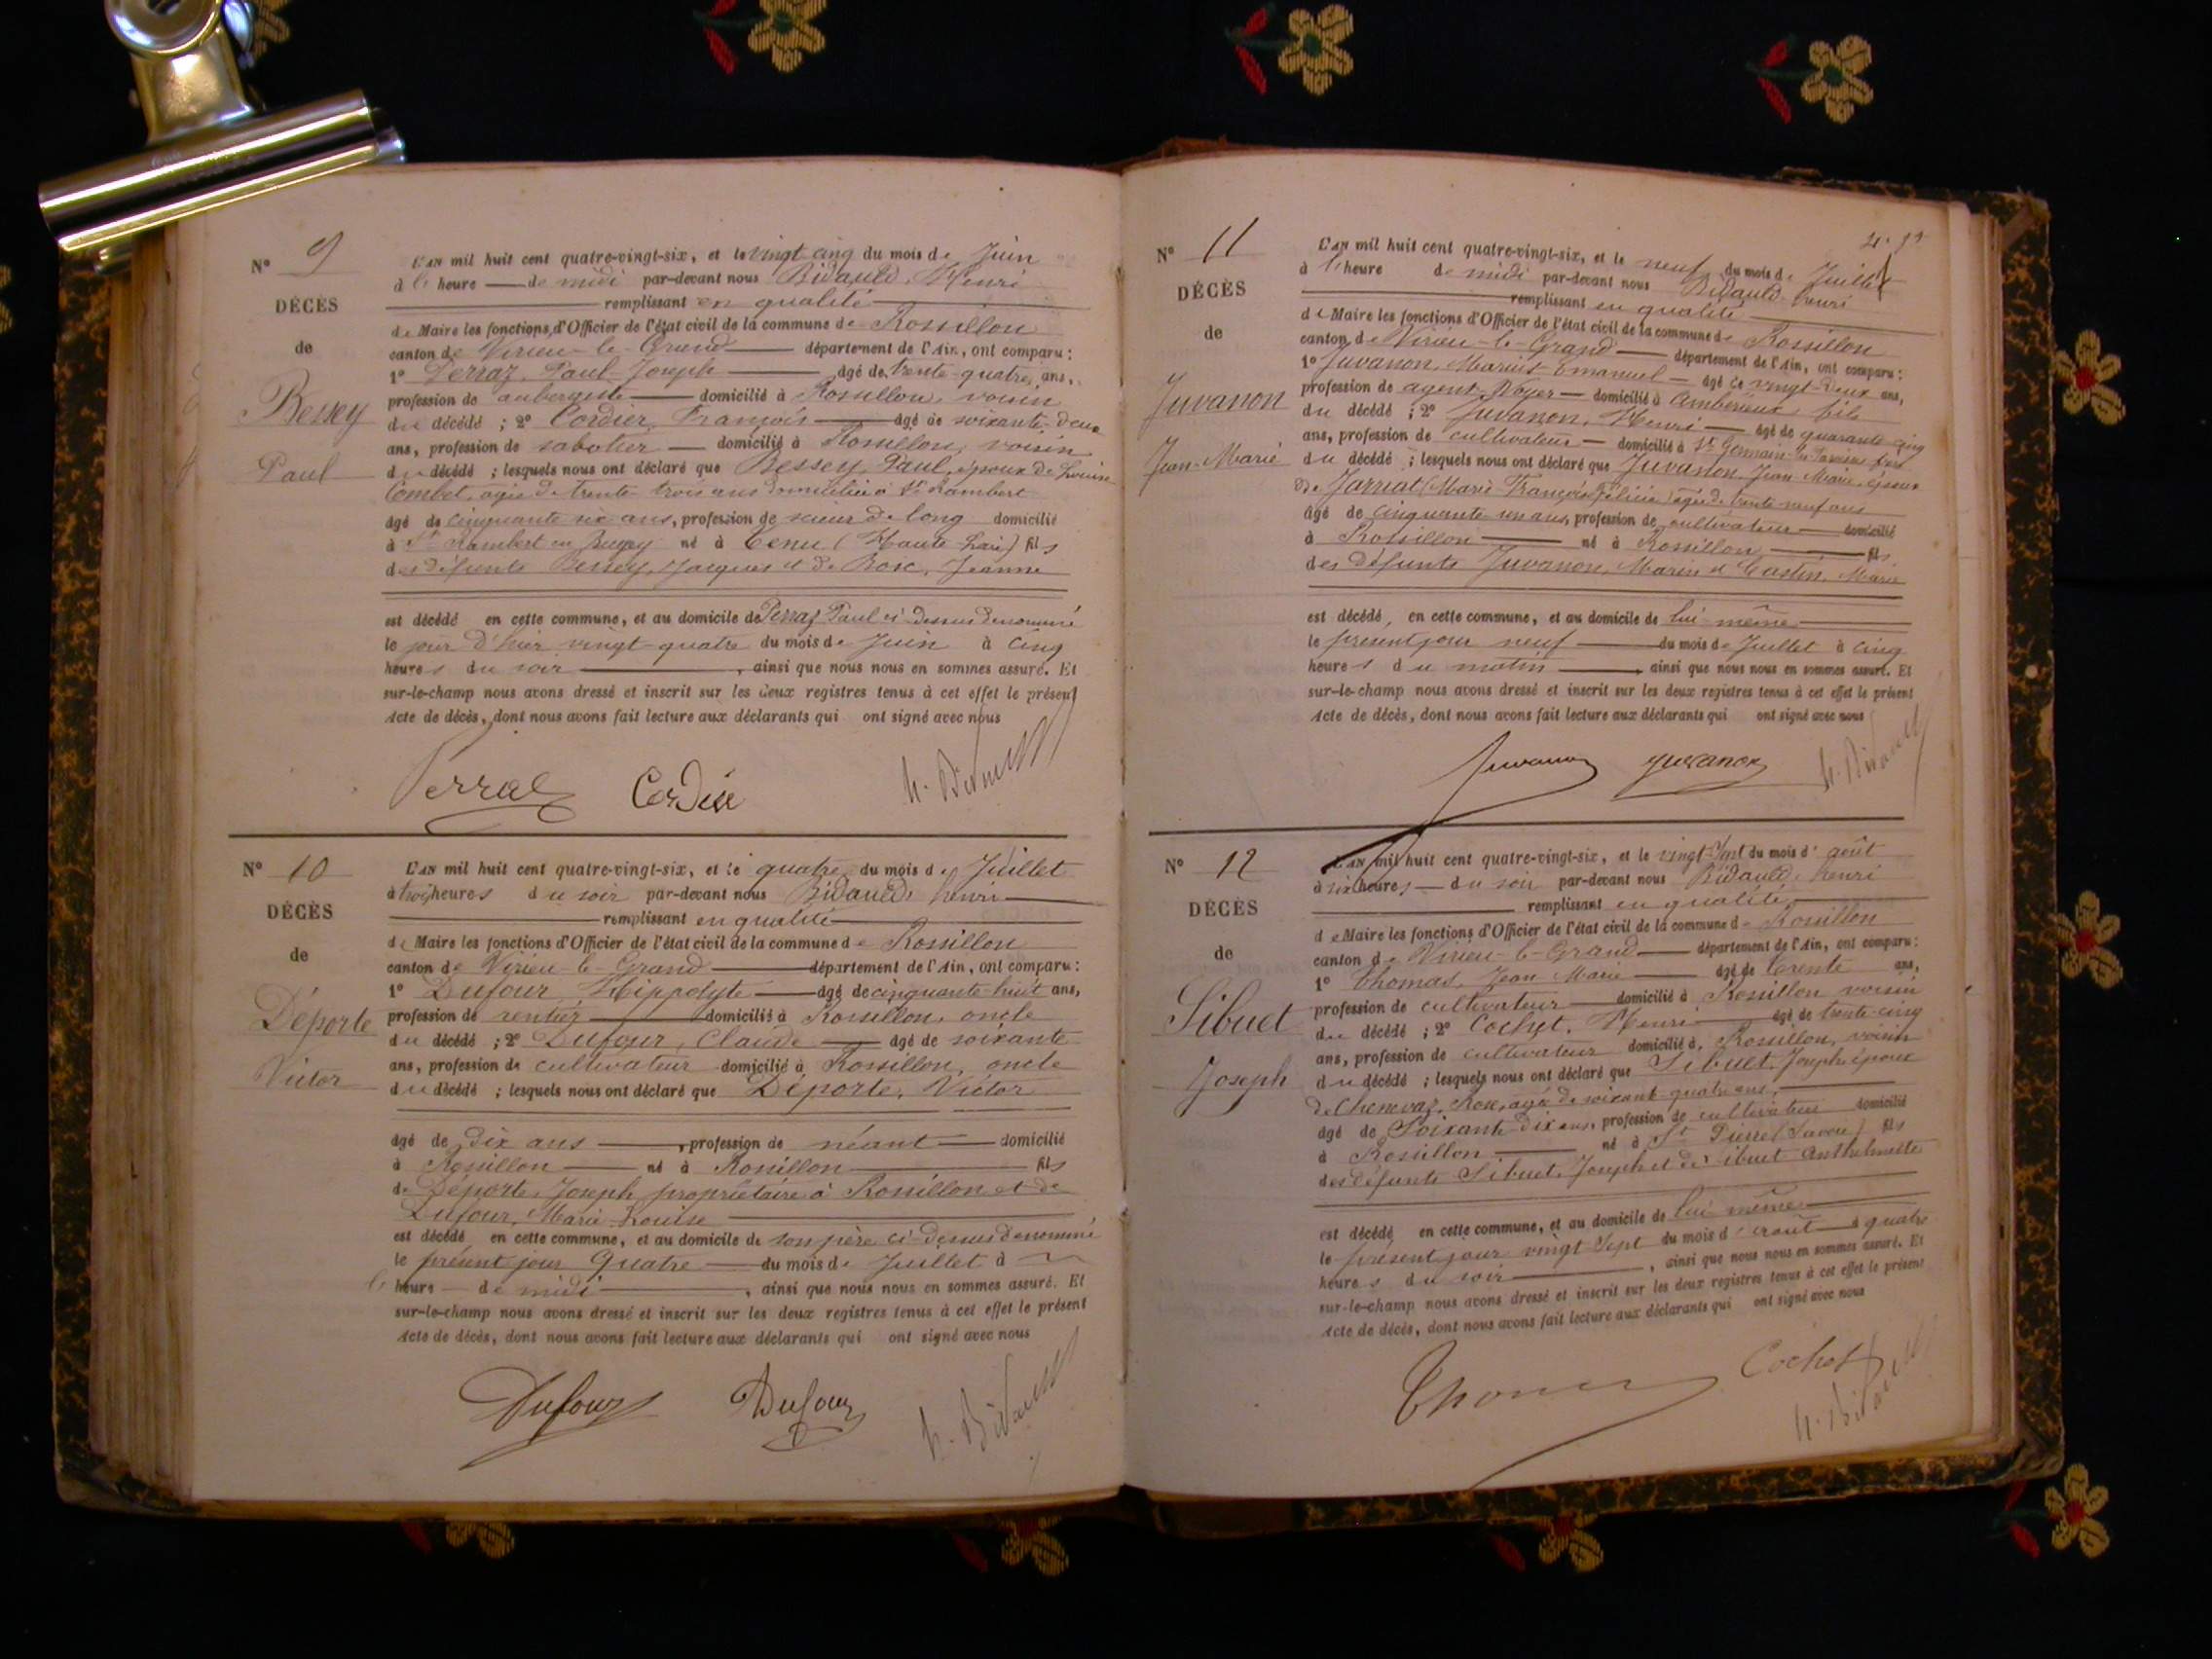 N° 9
DÉCÈS
de
Bessey
Paul
L'AN mil huit cent quatre-vingt-six, et le vingt cinq du mois de Juin
à l' heure de midi par-devant nous Bidauld, Henri
remplissant en qualité
de Maire les fonctions d'Officier de l'état civil de la commune de Rossillon
canton de Virieu-le-Grand département de l'Ain, ont comparu :
1° Perraz, Paul Joseph âgé de trente quatre ans,
profession de aubergiste domicilié à Rossillon, voisin
du décédé ; 2° Cordier, François âgé de soixante-deux
ans, profession de sabotier domicilié à Rossillon, voisin
du décédé ; lesquels nous ont déclaré que Bessey, Paul, époux de Louise
Combet, agée de trente trois ans domiciliée à St Rambert
âgé de cinquante six ans, profession de scieur de long domicilié
à St Rambert en Bugey né à (Haute Loire) fils
des défunts Bessey, Jacques et de Bose, Jeanne
est décédé en cette commune, et au domicile de Perraz Paul ci-dessus dénommé
le jour d'hier vingt quatre du mois de Juin à cinq
heures du soir , ainsi que nous nous en sommes assuré. Et
sur-le-champ nous avons dressé et inscrit sur les deux registres tenus à cet effet le présent
Acte de décès, dont nous avons fait lecture aux déclarants qui ont signé avec nous
Perraz Cordier H. Bidauld
N° 10
DÉCÈS
de
Déporte
Victor
L'AN mil huit cent quatre-vingt-six, et le quatre du mois de Juillet
à trois heures du soir par-devant nous Bidauld, henri
remplissant en qualité
de Maire les fonctions d'Officier de l'état civil de la commune de Rossillon
canton de Virieu-le-Grand département de l'Ain, ont comparu :
1° Dufour, Hippolyte âgé de cinquante-huit ans,
profession de rentier domicilié à Rossillon, oncle
du décédé ; 2° Dufour, Claude âgé de soixante
ans, profession de cultivateur domicilié à Rossillon, oncle
du décédé ; lesquels nous ont déclaré que Déporte, Victor
âgé de dix ans , profession de néant domicilié
à Rossillon né à Rossillon fils
de Déporte, Joseph, propriétaire à Rossillon et de
Dufour, Marie Louise
est décédé en cette commune, et au domicile de son père ci-dessus dénommé
le présent jour quatre du mois de Juillet à
l' heure de midi , ainsi que nous nous en sommes assuré. Et
sur-le-champ nous avons dressé et inscrit sur les deux registres tenus à cet effet le présent
Acte de décès, dont nous avons fait lecture aux déclarants qui ont signé avec nous
Dufour Dufour H. Bidauld
N° 11
DÉCÈS
de
Juvanon
Jean-Marie
L'AN mil huit cent quatre-vingt-six, et le neuf du mois de Juillet
à l' heure de midi par-devant nous Bidauld henri
remplissant en qualité
de Maire les fonctions d'Officier de l'état civil de la commune de Rossillon
canton de Virieu-le-Grand département de l'Ain, ont comparu :
1° Juvanon, Marius Emanuel âgé de vingt-deux ans,
profession de agent Voyer domicilié à Ambérieux fils
du décédé ; 2° Juvanon, Henri âgé de quarante cinq
ans, profession de cultivateur domicilié à St Germain les Paroisses frère
du décédé ; lesquels nous ont déclaré que Juvanon, Jean Marie, époux
de Jarniat (Marie Françoise Félicie) agée de trente neuf ans
âgé de cinquante un ans, profession de cultivateur domicilié
à Rossillon né à Rossillon fils
des défunts Juvanon, Marin et Castin, Marie
est décédé, en cette commune, et au domicile de lui même
le présent jour neuf du mois de Juillet à cinq
heures du matin , ainsi que nous nous en sommes assuré. Et
sur-le-champ nous avons dressé et inscrit sur les deux registres tenus à cet effet le présent
Acte de décès, dont nous avons fait lecture aux déclarants qui ont signé avec nous
Juvanon Juvanon H. Bidauld
N° 12
DÉCÈS
de
Sibuet
Joseph
L'AN mil huit cent quatre-vingt-six, et le vingt Sept du mois d' août
à six heures du soir par-devant nous Bidauld, henri
remplissant en qualité
de Maire les fonctions d'Officier de l'état civil de la commune de Rossillon
canton de Virieu-le-Grand département de l'Ain, ont comparu :
1° Thomas, Jean Marie âgé de trente ans,
profession de cultivateur domicilié à Rossillon voisin
du décédé ; 2° Cochet, Henri âgé de trente-cinq
ans, profession de cultivateur domicilié à Rossillon, voisin
du décédé ; lesquels nous ont déclaré que Sibuet, Joseph, époux
de Chenevaz, Rose, agée de soixant-quatre ans,
âgé de Soixante-dix ans, profession de cultivateur domicilié
à Rossillon né à St Pierre (Savoie) fils
des défunts Sibuet, Joseph et de Sibuet Anthelmette
est décédé en cette commune, et au domicile de lui même
le présent jour vingt Sept du mois d' août à quatre
heures du soir , ainsi que nous nous en sommes assuré. Et
sur-le-champ nous avons dressé et inscrit sur les deux registres tenus à cet effet le présent
Acte de décès, dont nous avons fait lecture aux déclarants qui ont signé avec nous
Thomas Cochet
H. Bidauld